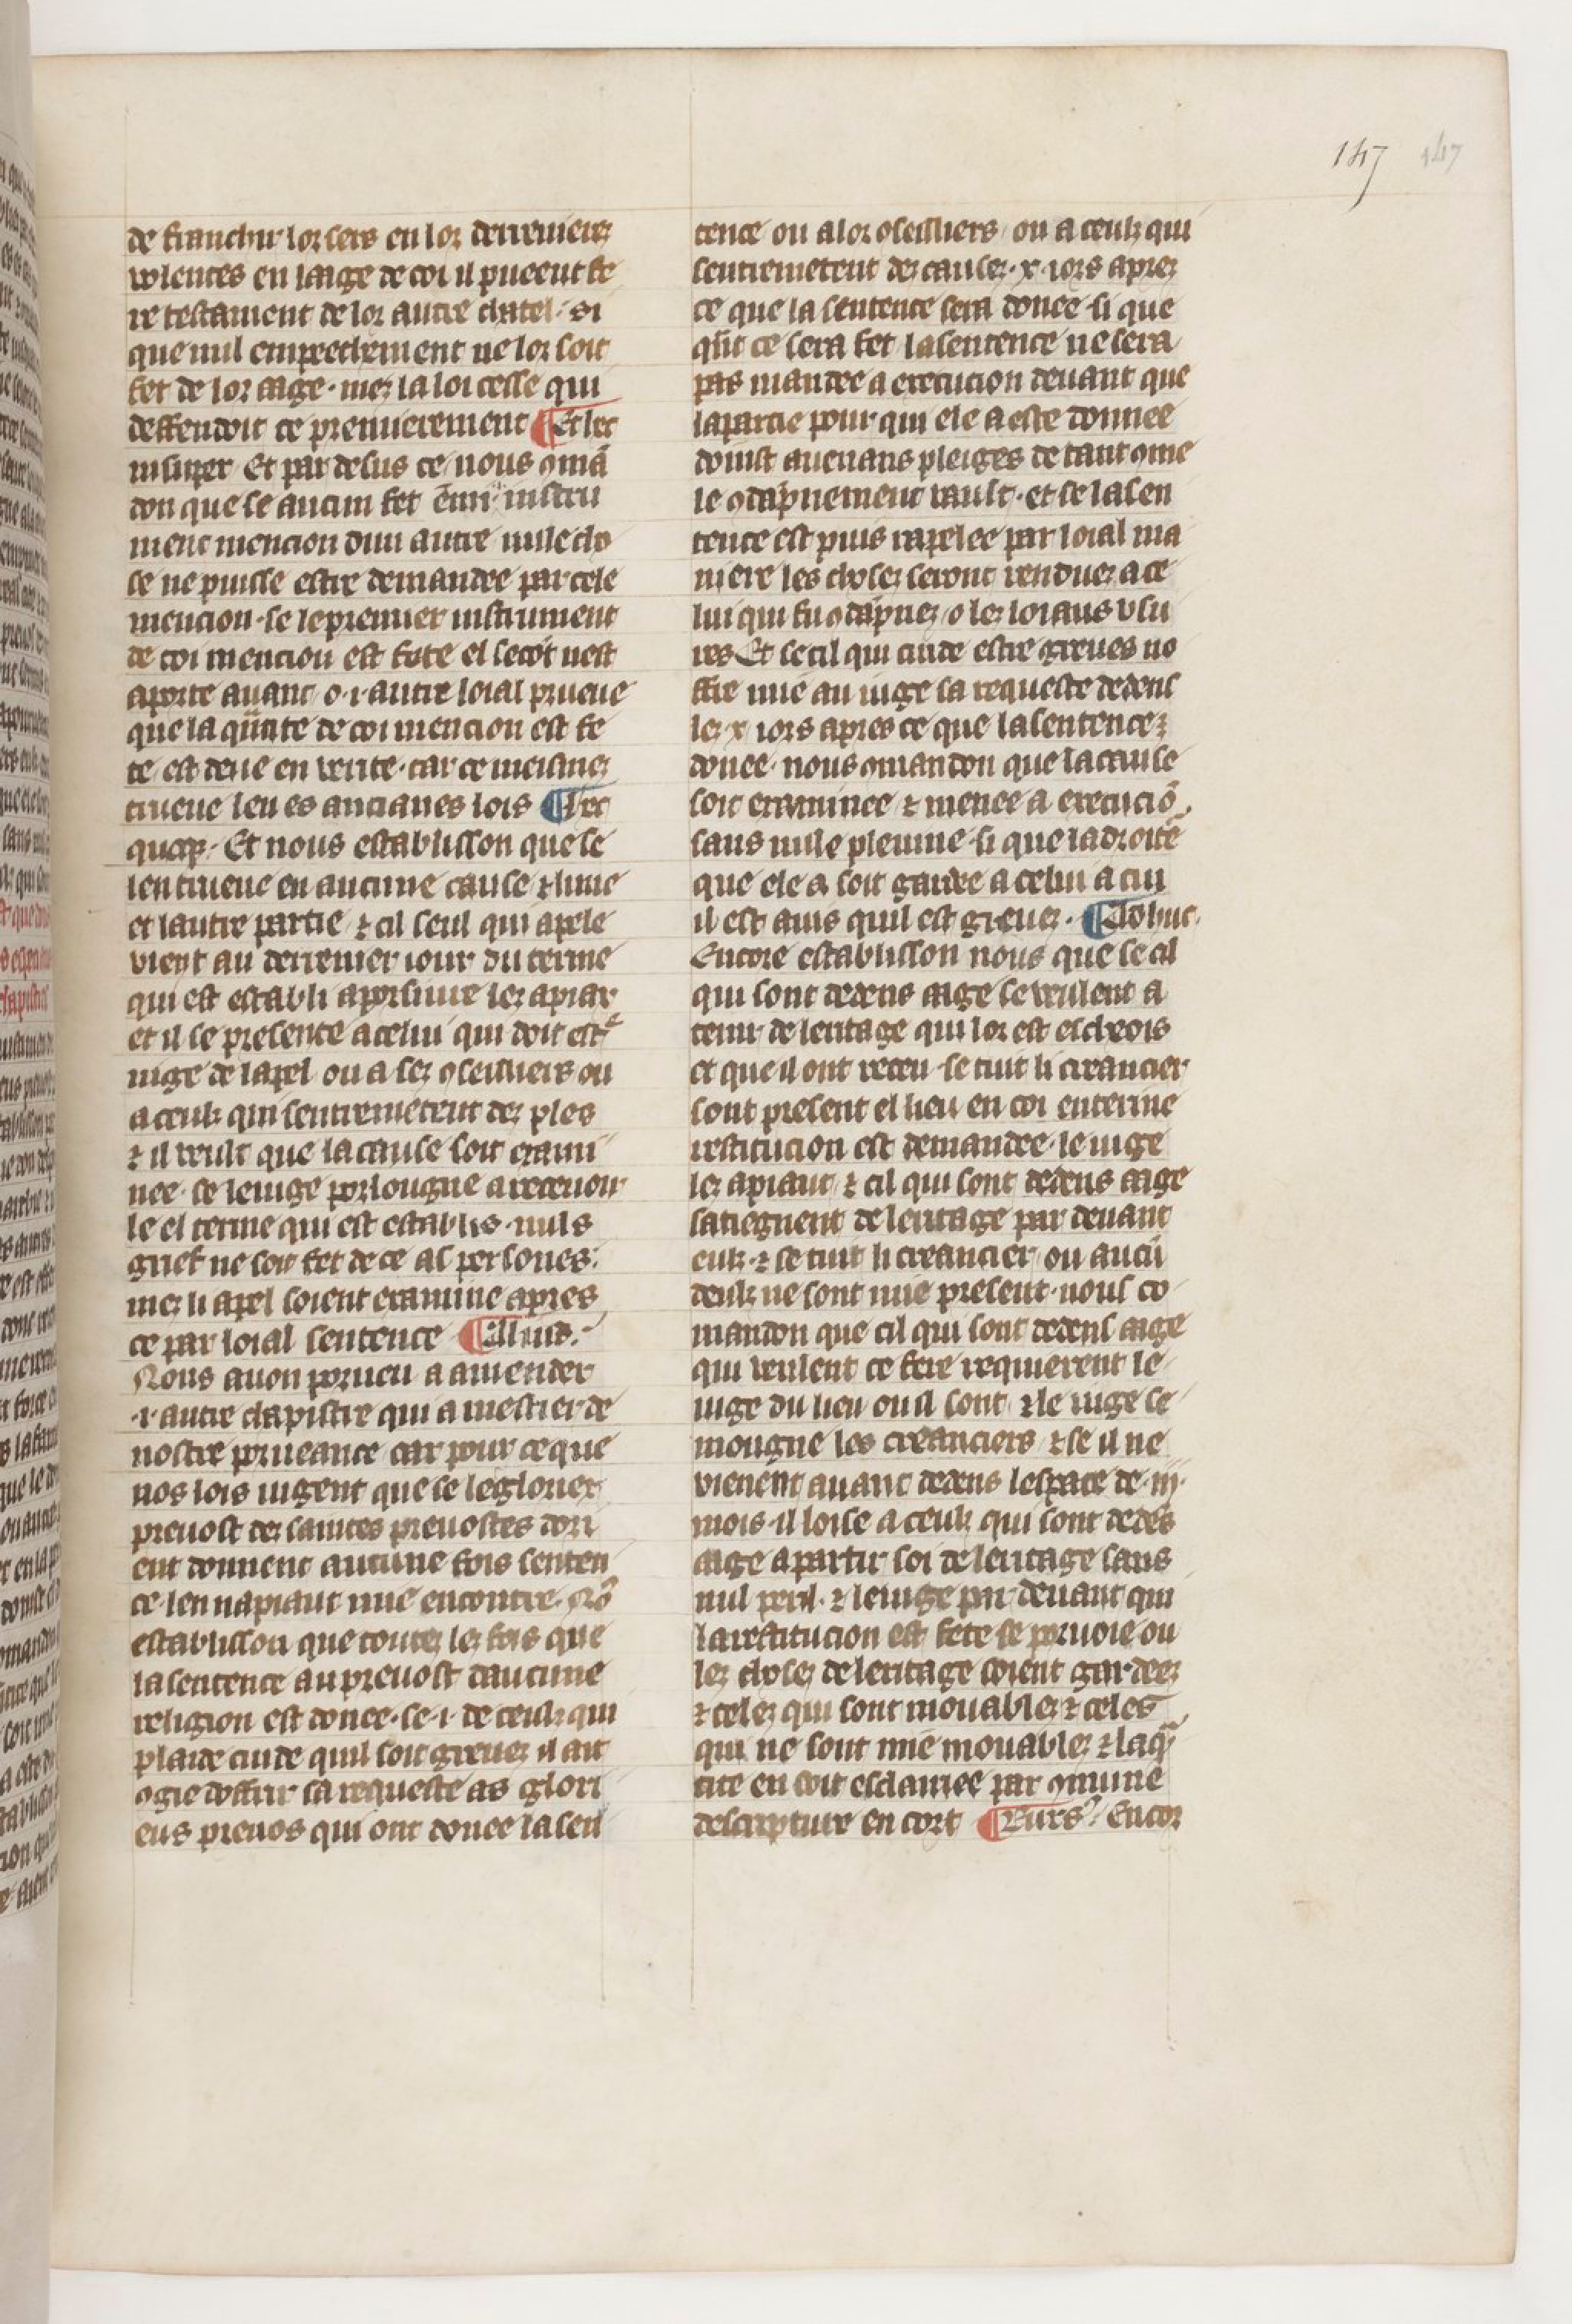 147 147
de franchir lor sers en lor derrenieres
volentes en laage de coi il pueent fe
re testament de lor autre chatel. si
que nul empeechement ne lor soit
fet de lor aage. mez la loi cesse qui
deffendoit ce premierement ¶ Et hec
insuper Et par desus ce nous ꝯmā
don que se aucun fet en .i. instru
ment mencion dun autre nule cho
se ne puisse estre demandee par cele
mencion. se le premier instrument
de coi mencion est fete el secōt nest
aporte auant o .i. autre loial prueue
que la qūtite de coi mencion est fe
te est deue en verite. car ce meismez
trueue len es ancianes lois ¶ Hec
quoqꝫ. Et nous establisson que se
len trueue en aucune cause ⁊ lune
et lautre partie ⁊ cil seul qui apele
vient au derrenier iour du terme
qui est establi a porsiuure lez apiax
et il se presente a celui qui doit estᵉ
iuge de lapel ou a sez ꝯseilliers ou
a ceulz qui sentremetent dez ples
⁊ il veult que la cause soit exami
nee. se le iuge porlongne a receuoir
le el terme qui est establis. nuls
grief ne soit fet de ce as persones.
mez li apel soient examine apres
ce par loial sentence ¶ Illud.
Nous auon porueu a amender
.i. autre chapistre qui a mestier de
nostre porueance car pour ce que
nos lois iugent que se le glorier
preuost dez saintes preuostes dori
ent donnent aucune fois senten
ce. len napiaut mie encontre. No᷒
establisson que toutez lez fois que
la sentence au preuost daucune
religion est donee. se .i. de ceulz qui
plaide cuide quil soit greuez il ait
ꝯgie doffrir sa requeste as glori
eus preuos qui ont donee la sen
tence ou a lor ꝯseilliers ou a ceulz qui
sentremetent dez causez .x. iors aprez
ce que la sentence sera donee si que
qūt ce sera fet la sentence ne sera
pas mandee a execucion deuant que
la partie pour qui ele a este donnee
doinst auenans pleiges de tant ꝯme
le ꝯdāpnement vault. et se la sen
tence est puis rapelee par loial ma
niere les chosez seront rendues a ce
lui qui fu ꝯdāpnez o lez loiaus vsu
res Et se cil qui cuide estre greues no
ffre mie au iuge sa requeste dedens
lez .x. iors apres ce que la sentence ꝫ
donee. nous ꝯmandon que la cause
soit examinee ⁊ menee a execuciō
sans nule pleuine si que la droite
que ele a soit gardee a celui a cui
il est auis quil est greuez. ¶ Ad huc
Encore establisson nous que se cil
qui sont dedens aage se veulent a
tenir de leritage qui lor est escheois
et que il ont receu. se tuit li creancier
sont present el lieu en coi enterine
restitucion est demandee. le iuge
lez apiaut ⁊ cil qui sont dedens aage
satiegnent de leritage par deuant
eulz. ⁊ se tuit li creancier ou aucū
deulz ne sont mie present. nous co
mandon que cil qui sont dedens aage
qui veulent ce fere requierent le
iuge du lieu ou il sont. ⁊ le iuge se
mongne les creanciers ⁊ se il ne
vienent auant dedens lespace de .iii.
mois. il loise a ceulz qui sont dedēs
aage a partir soi de leritage sans
nul peril. ⁊ le iuge par deuant qui
la restitucion est fete se poruoie ou
lez chosez de leritage soient gardeez
⁊ celez qui sont mouablez ⁊ celes
qui ne sont mie mouablez ⁊ la qᷓ
tite en soit esclairiee par ꝯmune
descripture en cort ¶ Rurs᷒. Encor